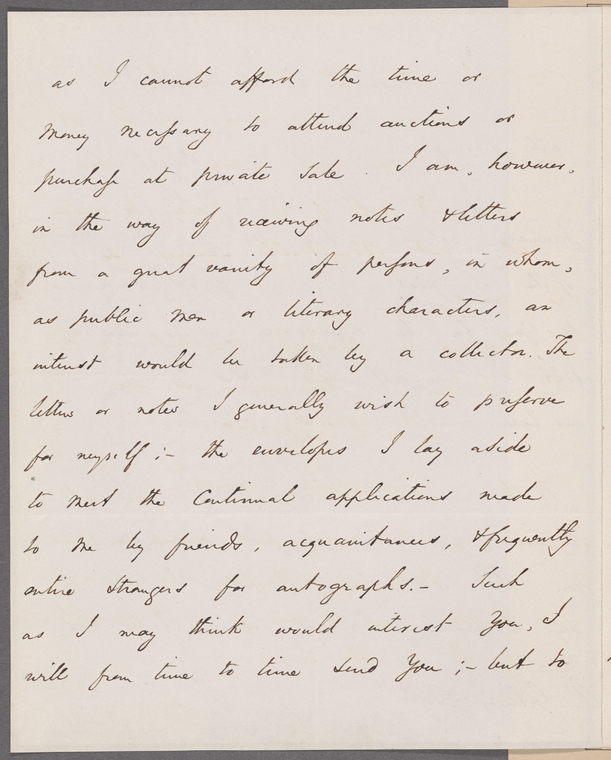 as I cannot afford the time or
money necessary to attend auctions or
purchase at private sale. I am, however,
in the way of receiving notes & letters
from a great variety of persons, in whom,
as public men or literary characters, an
interest would be taken by a collector. The
letters or notes I generally wish to preserve
for myself;- the envelopes I lay aside
to meet the continual applications made
to me by friends, acquaintances, & frequently
entire strangers for autographs.- Such
as I may think would interest you, I
will from time to time send you;- but to